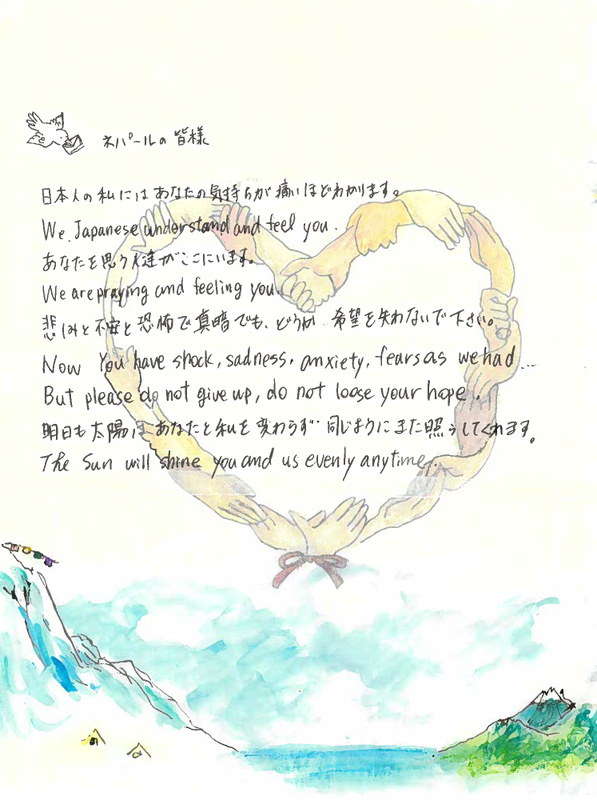 ネパールの皆様
日本人の私にはあなたの気持ちが痛いほどわかります。
We Japanese understand and feel you.
あなたを思う人達がここにいます。
We are praying and feeling you.
悲しみと不安と恐怖で真暗でも、どうか、希望を失わないで下さい。
Now You have shock, sadness, anxiety, fears as we had...
But please do not give up, do not loose your hope.
明日も太陽はあなたと私を変わらず同じようにまた照らしてくれます。
The Sun will shine you and us evenly anytime.